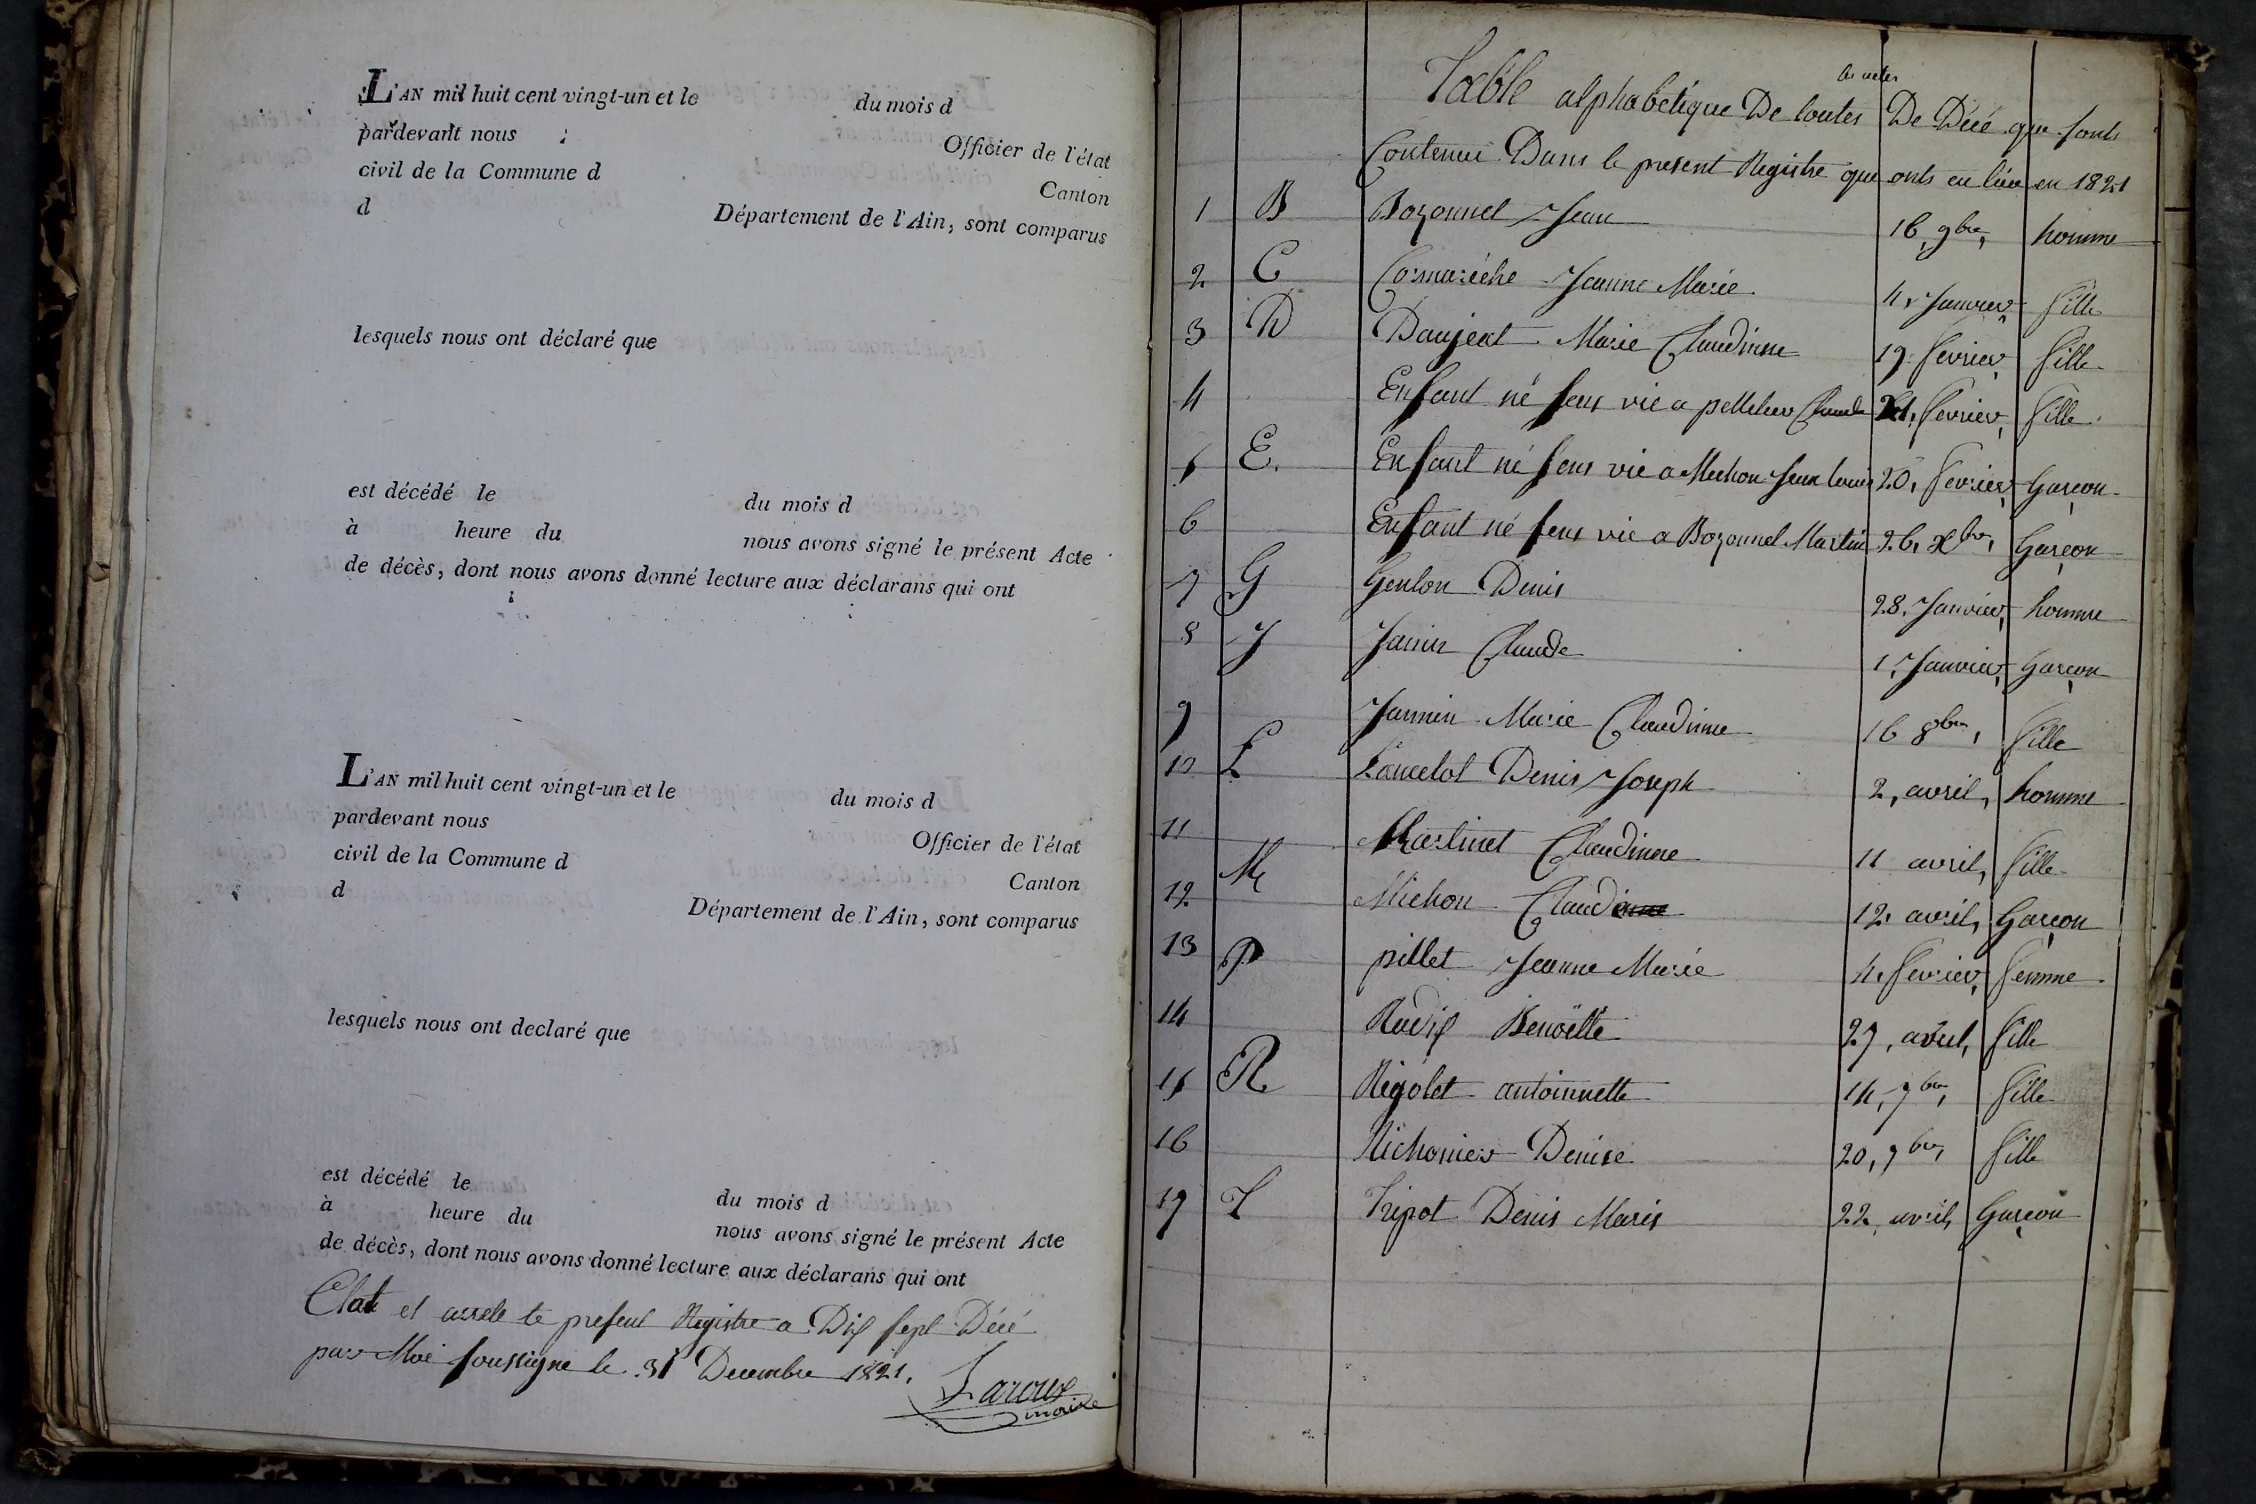 L'AN mil huit cent vingt-un et le du mois d
pardevant nous Officier de l'état
civil de la Commune d Canton
d Département de l'Ain, sont comparus
lesquels nous ont déclaré que
est décédé le du mois d
à heure du nous avons signé le présent Acte
de décès, dont nous avons donné lecture aux déclarans qui ont
L'AN mil huit cent vingt-un et le du mois d
pardevant nous Officier de l'état
civil de la Commune d Canton
d Département de l'Ain, sont comparus
lesquels nous ont declaré que
est décédé le du mois d
à heure du nous avons signé le présent Acte
de décès, dont nous avons donné lecture aux déclarans qui ont
Clot et arrete le present Registre a Dix sept Décé
par Moi soussigne le 31 Decembre 1821.
Laroux
maire
les actes
Table alphabetique De toutes De Décé que sonts
Contenue Dans le present Registre que onts eu lieu en 1821
1 B Bozonnet Jean 16, 9bre, homme
2 C Cormarèche Jeanne Marie 4, Janvier fille
3 D Daujeat Marie Claudinne 19 fevrier fille
4 Enfant né sens vie a pelletier Claude 21, fevrier, fille
5 E. Enfant né sens vie a Michon Jean louis 20, fevrier, Garçon
6 Enfant né sens vie a Bozonnet Martin 26, Xbre, Garçon
7 G Genton Denis 28, Janvier, homme
8 J Janin Claude 1, Janvier, Garçon
9 Jannin Marie Claudinne 16 8bre, fille
10 L Lancelot Denis Joseph 2, avril, homme
11 Martinet Claudinne 11 avril, fille
12 M Michon Claude 12 avril, Garçon
13 P pillet Jeanne Marie 4, fevrier, femme
14 Rudix Benoëtte 27, avril, fille
15 R Rigolet antoinnette 14, 7bre, fille
16 Richonier Denise 20, 7bre, fille
17 T Tripot Denis Maris 22, avril, Garçon